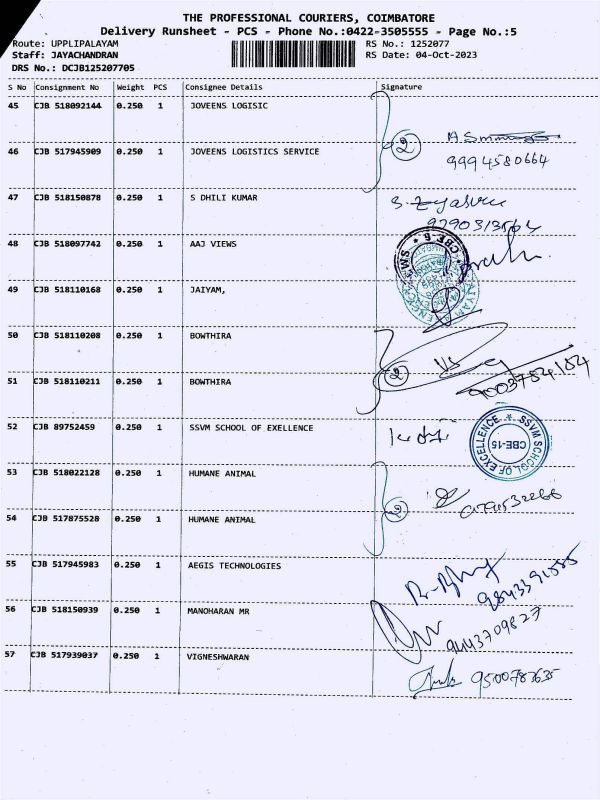 THE PROFESSIONAL COURIERS, COIMBATORE
Delivery Runsheet - PCS - Phone No.:0422-3505555 - Page No.:5
Route: UPPLIPALAYAM RS No.: 1252077
Staff: JAYACHANDRAN RS Date: 04-Oct-2023
DRS No.: DCJB125207705
S No Consignment No Weight PCS Consignee Details Signature
45 CJB 518092144 0.250 1 JOVEENS LOGISIC
2
46 CJB 517945909 0.250 1 JOVEENS LOGISTICS SERVICE
9994580664
47 CJB 518150878 0.250 1 S DHILI KUMAR
48 CJB 518097742 0.250 1 AAJ VIEWS
CBE-5
49 CJB 518110168 0.250 1 JAIYAM,
50 CJB 518110208 0.250 1 BOWTHIRA
2
51 CJB 518110211 0.250 1 BOWTHIRA
9003784184
52 CJB 89752459 0.250 1 SSVM SCHOOL OF EXELLENCE
SSVM SCHOOL OF EXCELLENCE
CBE-15
53 CJB 518022128 0.250 1 HUMANE ANIMAL
2
54 CJB 517875528 0.250 1 HUMANE ANIMAL
55 CJB 517945983 0.250 1 AEGIS TECHNOLOGIES
9843391585
56 CJB 518150939 0.250 1 MANOHARAN MR
9443709827
57 CJB 517939037 0.250 1 VIGNESHWARAN